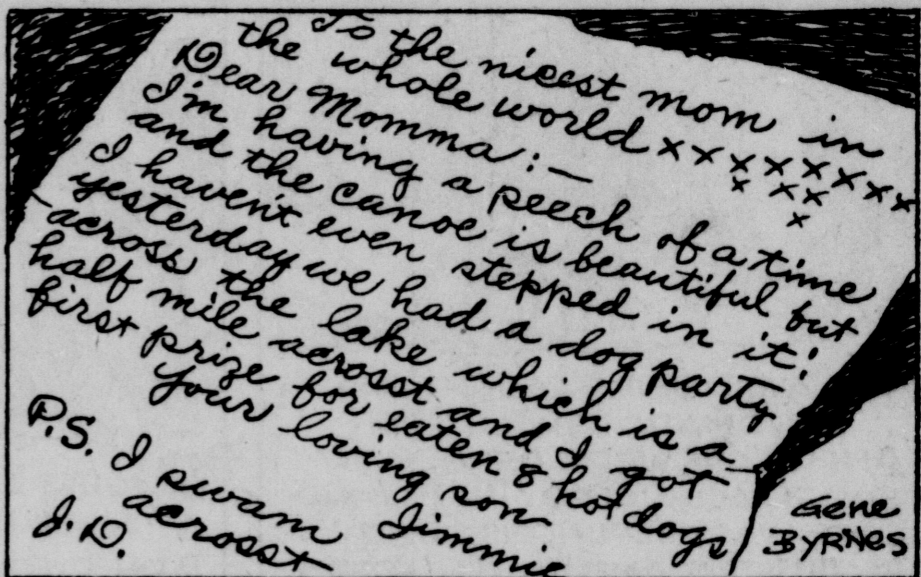 To the nicest mom in
the whole world x x x x x x x x
x x x
x
Dear Momma :—
I'm having a peech of a time
and the canoe is beautiful but
I haven't even stepped in it!
yesterday we had a dog party
across the lake which is a
half mile acrosst and I got
first prize for eaten 8 hot dogs
your loving son
Jimmie
P.S. I swam
acrosst
J. D.
Gene
BYRNES